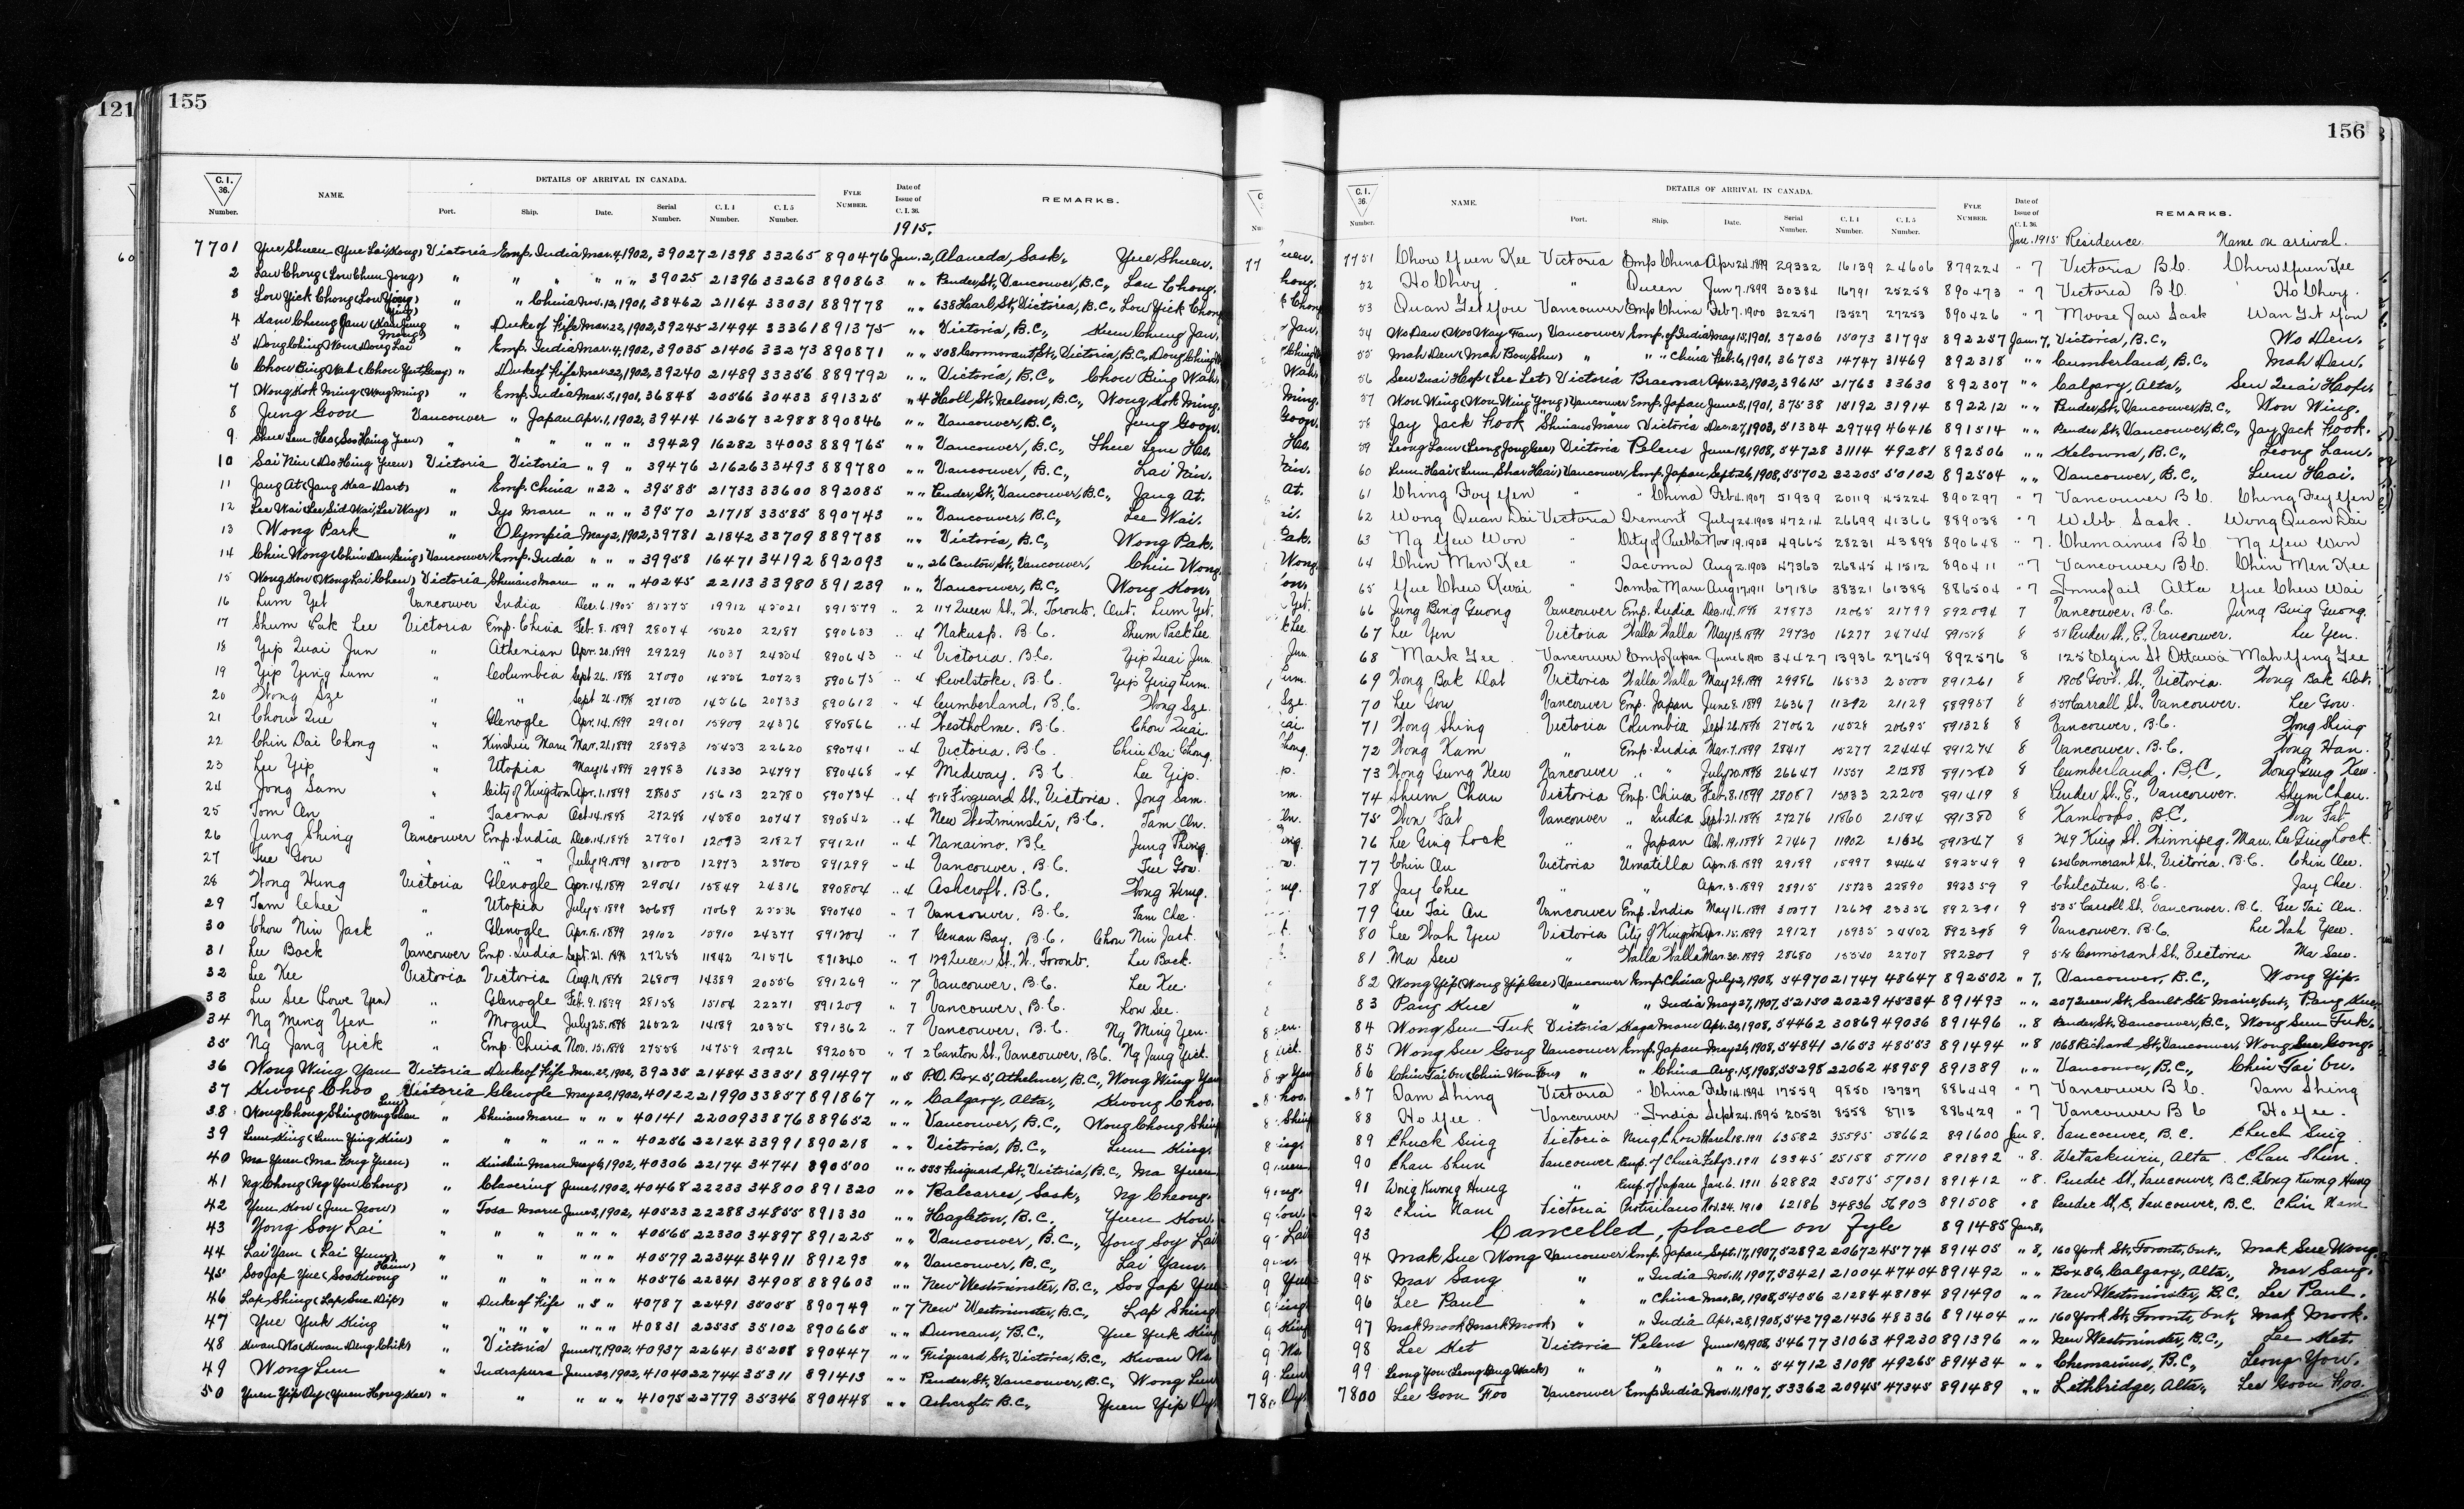 121
155
C. I. 36. Number. NAME. DETAILS OF ARRIVAL IN CANADA. Port. Ship. Date. Serial Number. C. I. 4 Number. C. I. 5 Number. FYLE NUMBER. Date of Issue of C. I. 36. REMARKS.
1915.
7701 Yue Shuen (Yue Lai Kong) Victoria Emp. India Mar. 4, 1902, 39027 21398 33265 890476 Jan. 2, Alameda, Sask., Yue Shuen.
2 Law Chong (Low Chun Jong) " " " " " " 39025 21396 33263 890863 " " Pender St., Vancouver, B.C., Lau Chong.
3 Low Yick Chong (Low Ying) " " China Nov. 12, 1901, 38462 21164 33031 889778 " " 638 Fisgard St., Victoria, B.C., Low Yick Chong
4 " Duke of Fife Mar. 22, 1902, 39245 21494 33361 891375 " " Victoria, B.C.,
5 " Emp. India Mar. 4, 1902, 39035 21406 33273 890871 " " 508 Cormorant St., Victoria, B.C.,
6 Chow Bing Wah " Duke of Fife Mar. 22, 1902, 39240 21489 33356 889792 " " Victoria, B.C., Chow Bing Wah.
7 Wong Kok Ming (Wong Ming) " Emp. India Mar. 5, 1901, 36848 20566 30433 891325 " 4 Hall St., Nelson, B.C., Wong Kok Ming.
8 Jung Goon Vancouver " Japan Apr. 1, 1902, 39414 16267 32988 890846 " " Vancouver, B.C., Jung Goon.
9 " " " " " " 39429 16282 34003 889765 " " Vancouver, B.C.,
10 Victoria Victoria " 9 " 39476 21626 33493 889780 " " Vancouver, B.C., Lai Nin.
11 Jang At " Emp. China " 22 " 39585 21733 33600 892085 " " Pender St., Vancouver, B.C., Jang At.
12 Lee Wai (Lee Sid Wai, Lee Way) " Iyo Maru " " " 39570 21718 33585 890743 " " Vancouver, B.C., Lee Wai.
13 Wong Park " Olympia May 2, 1902, 39781 21842 33709 889738 " " Victoria, B.C., Wong Pak.
14 Chin Wong Vancouver Emp. India " " " 39958 16471 34192 892093 " " 26 Canton St., Vancouver, Chin Wong.
15 Wong Kow Victoria Shinano Maru " " " 40245 22113 33980 891239 " " Vancouver, B.C., Wong Kow.
16 Lum Yet Vancouver India Dec. 6. 1905 51575 19912 45021 891579 " 2 117 Queen St. W. Toronto. Ont. Lum Yet.
17 Shum Pak Lee Victoria Emp. China Feb. 8. 1899 28074 15020 22187 890653 " 4 Nakusp. B.C. Shum Pack Lee
18 Yip Quai Jun " Athenian Apr. 20. 1899 29229 16037 24504 890643 " 4 Victoria. B.C. Yip Quai Jun.
19 Yip Ying Lum " Columbia Sept 26. 1898 27090 14556 20723 890675 " 4 Revelstoke. B.C. Yip Ying Lum.
20 Wong Sze " " Sept 26. 1898 27100 14566 20733 890612 " 4 Cumberland, B.C. Wong Sze.
21 Chow Que " Glenogle Apr. 14. 1899 29101 15909 24376 890866 " 4 Westholme. B.C. Chow Quai.
22 Chin Dai Chong " Kinshiu Maru Mar. 21. 1899 28593 15453 22620 890741 " 4 Victoria. B.C. Chin Dai Chong.
23 Lee Yip " Utopia May 16. 1899 29783 16330 24797 890468 " 4 Midway. B.C. Lee Yip.
24 Jong Sam " City of Kingston Apr. 1. 1899 28805 15613 22780 890734 " 4 518 Fisguard St., Victoria. Jong Sam.
25 Tom An " Tacoma Oct. 14. 1898 27298 14580 20747 890842 " 4 New Westminster, B.C. Tam An.
26 Jung Shing Vancouver Emp. India Dec. 14. 1898 27901 12093 21827 891211 " 4 Nanaimo. B.C. Jung Thing.
27 Tue Gow " " " July 19. 1899 31000 12973 23700 891299 " 4 Vancouver. B.C. Tue Gow.
28 Wong Hung Victoria Glenogle Apr. 14. 1899 29041 15849 24316 890804 " 4 Ashcroft. B.C. Wong Hung.
29 Tam Chee " Utopia July 5. 1899 30689 17069 25536 890740 " 7 Vancouver. B.C. Tam Chee.
30 Chow Nin Jack " Glenogle Apr. 15. 1899 29102 15910 24377 891204 " 7 Genan Bay. B.C. Chow Nin Jack.
31 Lee Back Vancouver Emp. India Sept. 21. 1898 27258 11842 21576 891340 " 7 129 Queen St., W. Toronto. Lee Back.
32 Lee Kee Victoria Victoria Aug. 11. 1898 26809 14389 20556 891269 " 7 Vancouver. B.C. Lee Kee.
33 Lu See (Lowe Yen) " Glenogle Feb. 9. 1899 28158 15104 22271 891209 " 7 Vancouver. B.C. Low See.
34 Ng Ming Yen " Mogul July 25. 1898 26522 14189 20356 891362 " 7 Vancouver. B.C. Ng Ming Yen.
35 Ng Jang Yick " Emp. China Nov. 15. 1898 27558 14759 20926 892050 " 7 2 Canton St., Vancouver, B.C. Ng Jang Yick.
36 Wong Wing Yam Victoria Duke of Fife Mar. 22, 1902, 39235 21484 33351 891497 " 5 P.O. Box 5, Athelmer, B.C., Wong Wing Yam
37 Kwong Choo Victoria Glenogle May 20, 1902, 40122 21990 33857 891867 " " Calgary, Alta., Kwong Choo.
38 Wong Chong Shing " Shinano Maru " " " 40141 22009 33876 889652 " " Vancouver, B.C., Wong Chong Shing
39 Lum King (Lum Ying Kin) " " " " " " 40256 22124 33991 890218 " " Victoria, B.C., Lum King.
40 Ma Yuen (Ma Fong Yuen) " Kinshiu Maru May 6, 1902, 40306 22174 34741 890500 " " 555 Fisguard St., Victoria, B.C., Ma Yuen.
41 Ng Chong (Ng Yow Chong) " Clavering June 1, 1902, 40468 22233 34800 891320 " " Balcarres, Sask., Ng Cheong.
42 Yuen Kow " Tosa Maru June 3, 1902, 40523 22288 34855 891330 " " Hazleton, B.C., Yuen Kow.
43 Yong Soy Lai " " " " " " 40565 22330 34897 891225 " " Vancouver, B.C., Yong Soy Lai
44 Lai Yam (Lai Yum) " " " " " " 40579 22344 34911 891293 " " Vancouver, B.C., Lai Yam.
45 Soo Jap Yue " " " " " " 40576 22341 34908 889603 " " New Westminster, B.C., Soo Jap Yue
46 Lap Shing (Lap Sue Dip) " Duke of Fife " 5 " 40787 22491 35058 890749 " 7 New Westminster, B.C., Lap Shing
47 Yue Yuk King " " " " " " 40831 22535 35102 890665 " " Duncans, B.C., Yue Yuk King
48 Kwan Wo " Victoria June 17, 1902, 40937 22641 35208 890447 " " Fisguard St., Victoria, B.C., Kwan Wo.
49 Wong Lun " Indrapura June 23, 1902, 41040 22744 35311 891413 " " Pender St., Vancouver, B.C., Wong Lun
50 Yuen Yip Dy (Yuen Hong Kee) " " " " " 41075 22779 35346 890448 " " Ashcroft B.C., Yuen Yip Dy.
156
C. I. 36. Number. NAME. DETAILS OF ARRIVAL IN CANADA. Port. Ship. Date. Serial Number. C. I. 4 Number. C. I. 5 Number. FYLE NUMBER. Date of Issue of C. I. 36. REMARKS.
Jan. 1915 Residence. Name on arrival.
7751 Chow Yuen Kee Victoria Emp China Apr 24. 1899 29332 16139 24606 879224 " 7 Victoria B.C. Chow Yuen Kee
52 Ho Choy " Queen Jun 7. 1899 30384 16791 25258 890473 " 7 Victoria B.C. Ho Choy.
53 Quan Get You Vancouver Emp China Feb 7. 1900 32257 13527 27253 890426 " 7 Moose Jaw Sask Wan Get Yon
54 Wo Daw (Woo Way Fan) Vancouver Emp. of India May 15, 1901, 37206 15073 31795 892257 Jan. 7, Victoria, B.C., Wo Den.
55 Mah Dew " " China Feb. 6, 1901, 36753 14747 31469 892318 " " Cumberland, B.C., Mah Dew.
56 Sew Quai Hop (Lee Let) Victoria Braemar Apr. 22, 1902, 39615 21763 33630 892307 " " Calgary, Alta., Sew Quai Hop.
57 Won Wing (Won Wing Yong) Vancouver Emp. Japan June 5, 1901, 37538 15192 31914 892212 " " Pender St., Vancouver, B.C., Won Wing.
58 Jay Jack Hook Shinano Maru Victoria Dec. 27, 1903, 51334 29749 46416 891514 " " Pender St., Vancouver, B.C., Jay Jack Hook.
59 Leong Lam Victoria Peleus June 18, 1908, 54728 31114 49281 892506 " " Kelowna, B.C., Leong Lam.
60 Lum Hai (Lum Shar Hai) Vancouver Emp. Japan Sept 26, 1908, 55702 22205 50102 892504 " " Vancouver, B.C., Lum Hai.
61 Ching Foy Yen " " China Feb 4. 1907 51939 20119 45224 890297 " 7 Vancouver B.C. Ching Fey Yen
62 Wong Quan Dai Victoria Tremont July 24. 1903 47214 26699 41366 889038 " 7 Webb Sask. Wong Quan Dai
63 Ng Yew Won " City of Puebla Nov 19. 1903 49665 28231 43898 890648 " 7. Chemainus B.C Ng Yew Won
64 Chin Men Kee " Tacoma Aug 2. 1903 47363 26845 41512 890411 " 7 Vancouver B.C. Chin Men Kee
65 Yue Chew Kwai " Tamba Maru Aug 17. 1911 67186 38321 61388 886504 " 7 Innisfail Alta Yue Chew Wai
66 Jung Bing Guong Vancouver Emp. India Dec. 14. 1898 27873 12065 21799 892094 7 Vancouver. B.C. Jung Bing Guong.
67 Lee Yen Victoria Walla Walla May 13. 1899 29730 16277 24744 891578 8 57 Pender St., E., Vancouver. Lee Yen.
68 Mark Gee Vancouver Emp Japan June 6 1900 34427 13936 27659 892576 8 125 Elgin St Ottawa Mah Ying Gee
69 Wong Bak Dat Victoria Walla Walla May 29. 1899 29986 16533 25000 891261 8 1806 Govt. St., Victoria. Wong Bak Dat.
70 Lee Gow Vancouver Emp. Japan June 8. 1899 26367 11392 21129 889957 8 557 Carrall St., Vancouver. Lee Gow.
71 Wong Shing Victoria Columbia Sept 26. 1898 27062 14528 20695 891328 8 Vancouver, B.C. Wong Shing
72 Wong Kam " Emp. India Mar. 7. 1899 28417 15277 22444 891274 8 Vancouver. B.C. Wong Han.
73 Wong Gung Kew Vancouver " " July 20. 1898 26647 11557 21288 891240 8 Cumberland. B.C. Wong Gung Kew.
74 Shum Chau Victoria Emp. China Feb. 8. 1899 28087 15033 22200 891419 8 Pender St., E., Vancouver. Shum Chau.
75 Won Fat Vancouver " India Sept. 21. 1898 27276 11860 21594 891380 8 Kamloops. B.C. Won Fat.
76 Lee Ging Lock " " Japan Oct. 19. 1898 27467 11902 21636 891347 8 249 King St. Winnipeg. Man. Lee Ging Lock.
77 Chin An Victoria Umatilla Apr. 18. 1899 29189 15997 24464 892549 9 624 Cormorant St., Victoria. B.C. Chin An.
78 Jay Chee " " Apr. 3. 1899 28915 15723 22890 892359 9 Chilcaten. B.C. Jay Chee.
79 Gee Tai An Vancouver Emp. India May 16. 1899 30077 12629 23356 892391 9 535 Carroll St., Vancouver. B.C. Gee Tai An.
80 Lee Wah Yew Victoria City of Kingston Apr. 15. 1899 29127 15935 24402 892398 9 Vancouver. B.C. Lee Wah Yew.
81 Ma Sew " Walla Walla Mar. 30. 1899 28680 15540 22707 892307 9 518 Cormorant St. Victoria Ma Sew.
82 Wong Yip (Wong Yip Lee) Vancouver Emp. China July 2, 1908, 54970 21747 48647 892502 " 7, Vancouver, B.C., Wong Yip.
83 Pang Kue " " India May 27, 1907, 52150 20229 45334 891493 " " 207 Queen St., Sault Ste Marie, Ont., Pang Kue.
84 Wong Sun Fuk Victoria Kaga Maru Apr. 30, 1908, 54462 30869 49036 891496 " 8 Pender St., Vancouver, B.C., Wong Sun Fuk.
85 Wong Sue Gong Vancouver Emp. Japan May 26, 1908, 54841 21653 48553 891494 " 8 1068 Richard St., Vancouver, Wong Sue Gong.
86 Chin Tai On " " China Aug. 15, 1908, 55298 22062 48959 891389 " " Vancouver, B.C., Chin Tai On.
87 Dam Shing Victoria " China Feb 14. 1894 17559 9850 13737 886449 " 7 Vancouver B.C. Dam Shing
88 Ho Yee Vancouver " India Sept 24. 1895 20531 8558 8713 886429 " 7 Vancouver B.C Ho Yee.
89 Chuck Sing Victoria Ning Chow March 18. 1911 63582 35595 58662 891600 Jan 8. Vancouver, B.C. Chuck Sing
90 Chan Shun Vancouver Emp. of China Feb 3. 1911 63345 25158 57110 891892 " 8. Wetaskiwin, Alta. Chan Shun.
91 Wong Kwong Hung " Emp. of Japan Jan. 6. 1911 62882 25075 57031 891412 " 8. Pender St., Vancouver, B.C. Wong Kwong Hung
92 Chin Nam Victoria Protesilaus Nov. 24. 1910 62186 34836 56903 891508 " 8 Pender St., E, Vancouver, B.C. Chin Nam
93 Cancelled, placed on Fyle 891485 Jan. 8,
94 Mak Sue Wong Vancouver Emp. Japan Sept. 17, 1907, 52892 20672 45774 891405 " 8, 160 York St., Toronto, Ont., Mak Sue Wong.
95 Mar Sang " " India Nov. 11, 1907, 53421 21004 47404 891492 " " Box 86, Calgary, Alta., Mar Sang.
96 Lee Paul " " China Mar. 20, 1908, 54056 21284 48184 891490 " " New Westminster, B.C. Lee Paul.
97 Mak Mook (Mark Mook) " " India Apr. 28, 1908, 54279 21436 48336 891404 " " 160 York St., Toronto, Ont. Mak Mook.
98 Lee Ket Victoria Peleus June 18, 1908, 54677 31063 49230 891396 " " New Westminster, B.C., Lee Ket.
99 Leong You " " " " " 54712 31098 49265 891434 " " Chemainus, B.C., Leong Yow.
7800 Lee Goon Foo Vancouver Emp India Nov. 11, 1907, 53362 20945 47345 891489 " " Lethbridge, Alta., Lee Goon Foo.